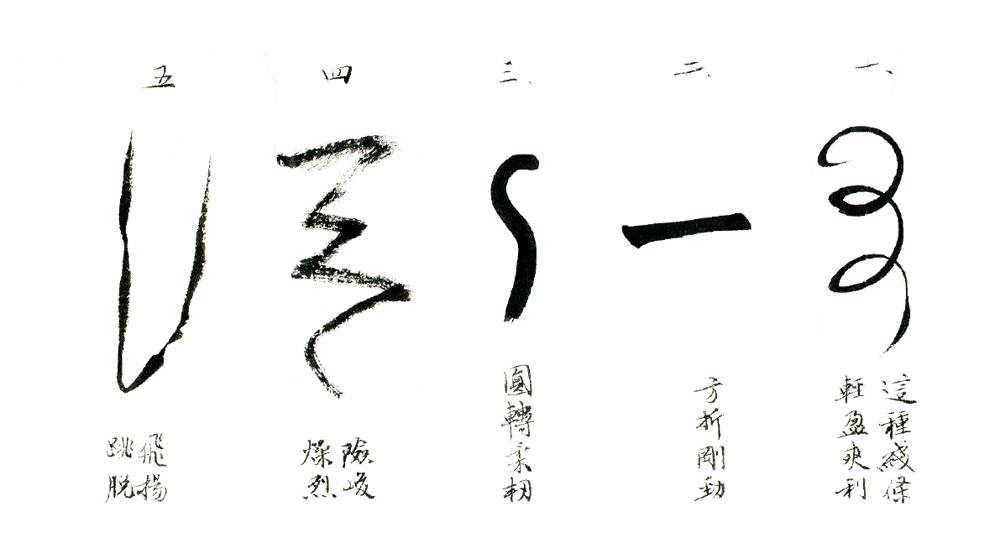 一、
這種綫條
輕盈爽利
二、
方折剛勁
三、
圓轉柔韌
四
險峻
燥烈
五
飛揚
跳脫